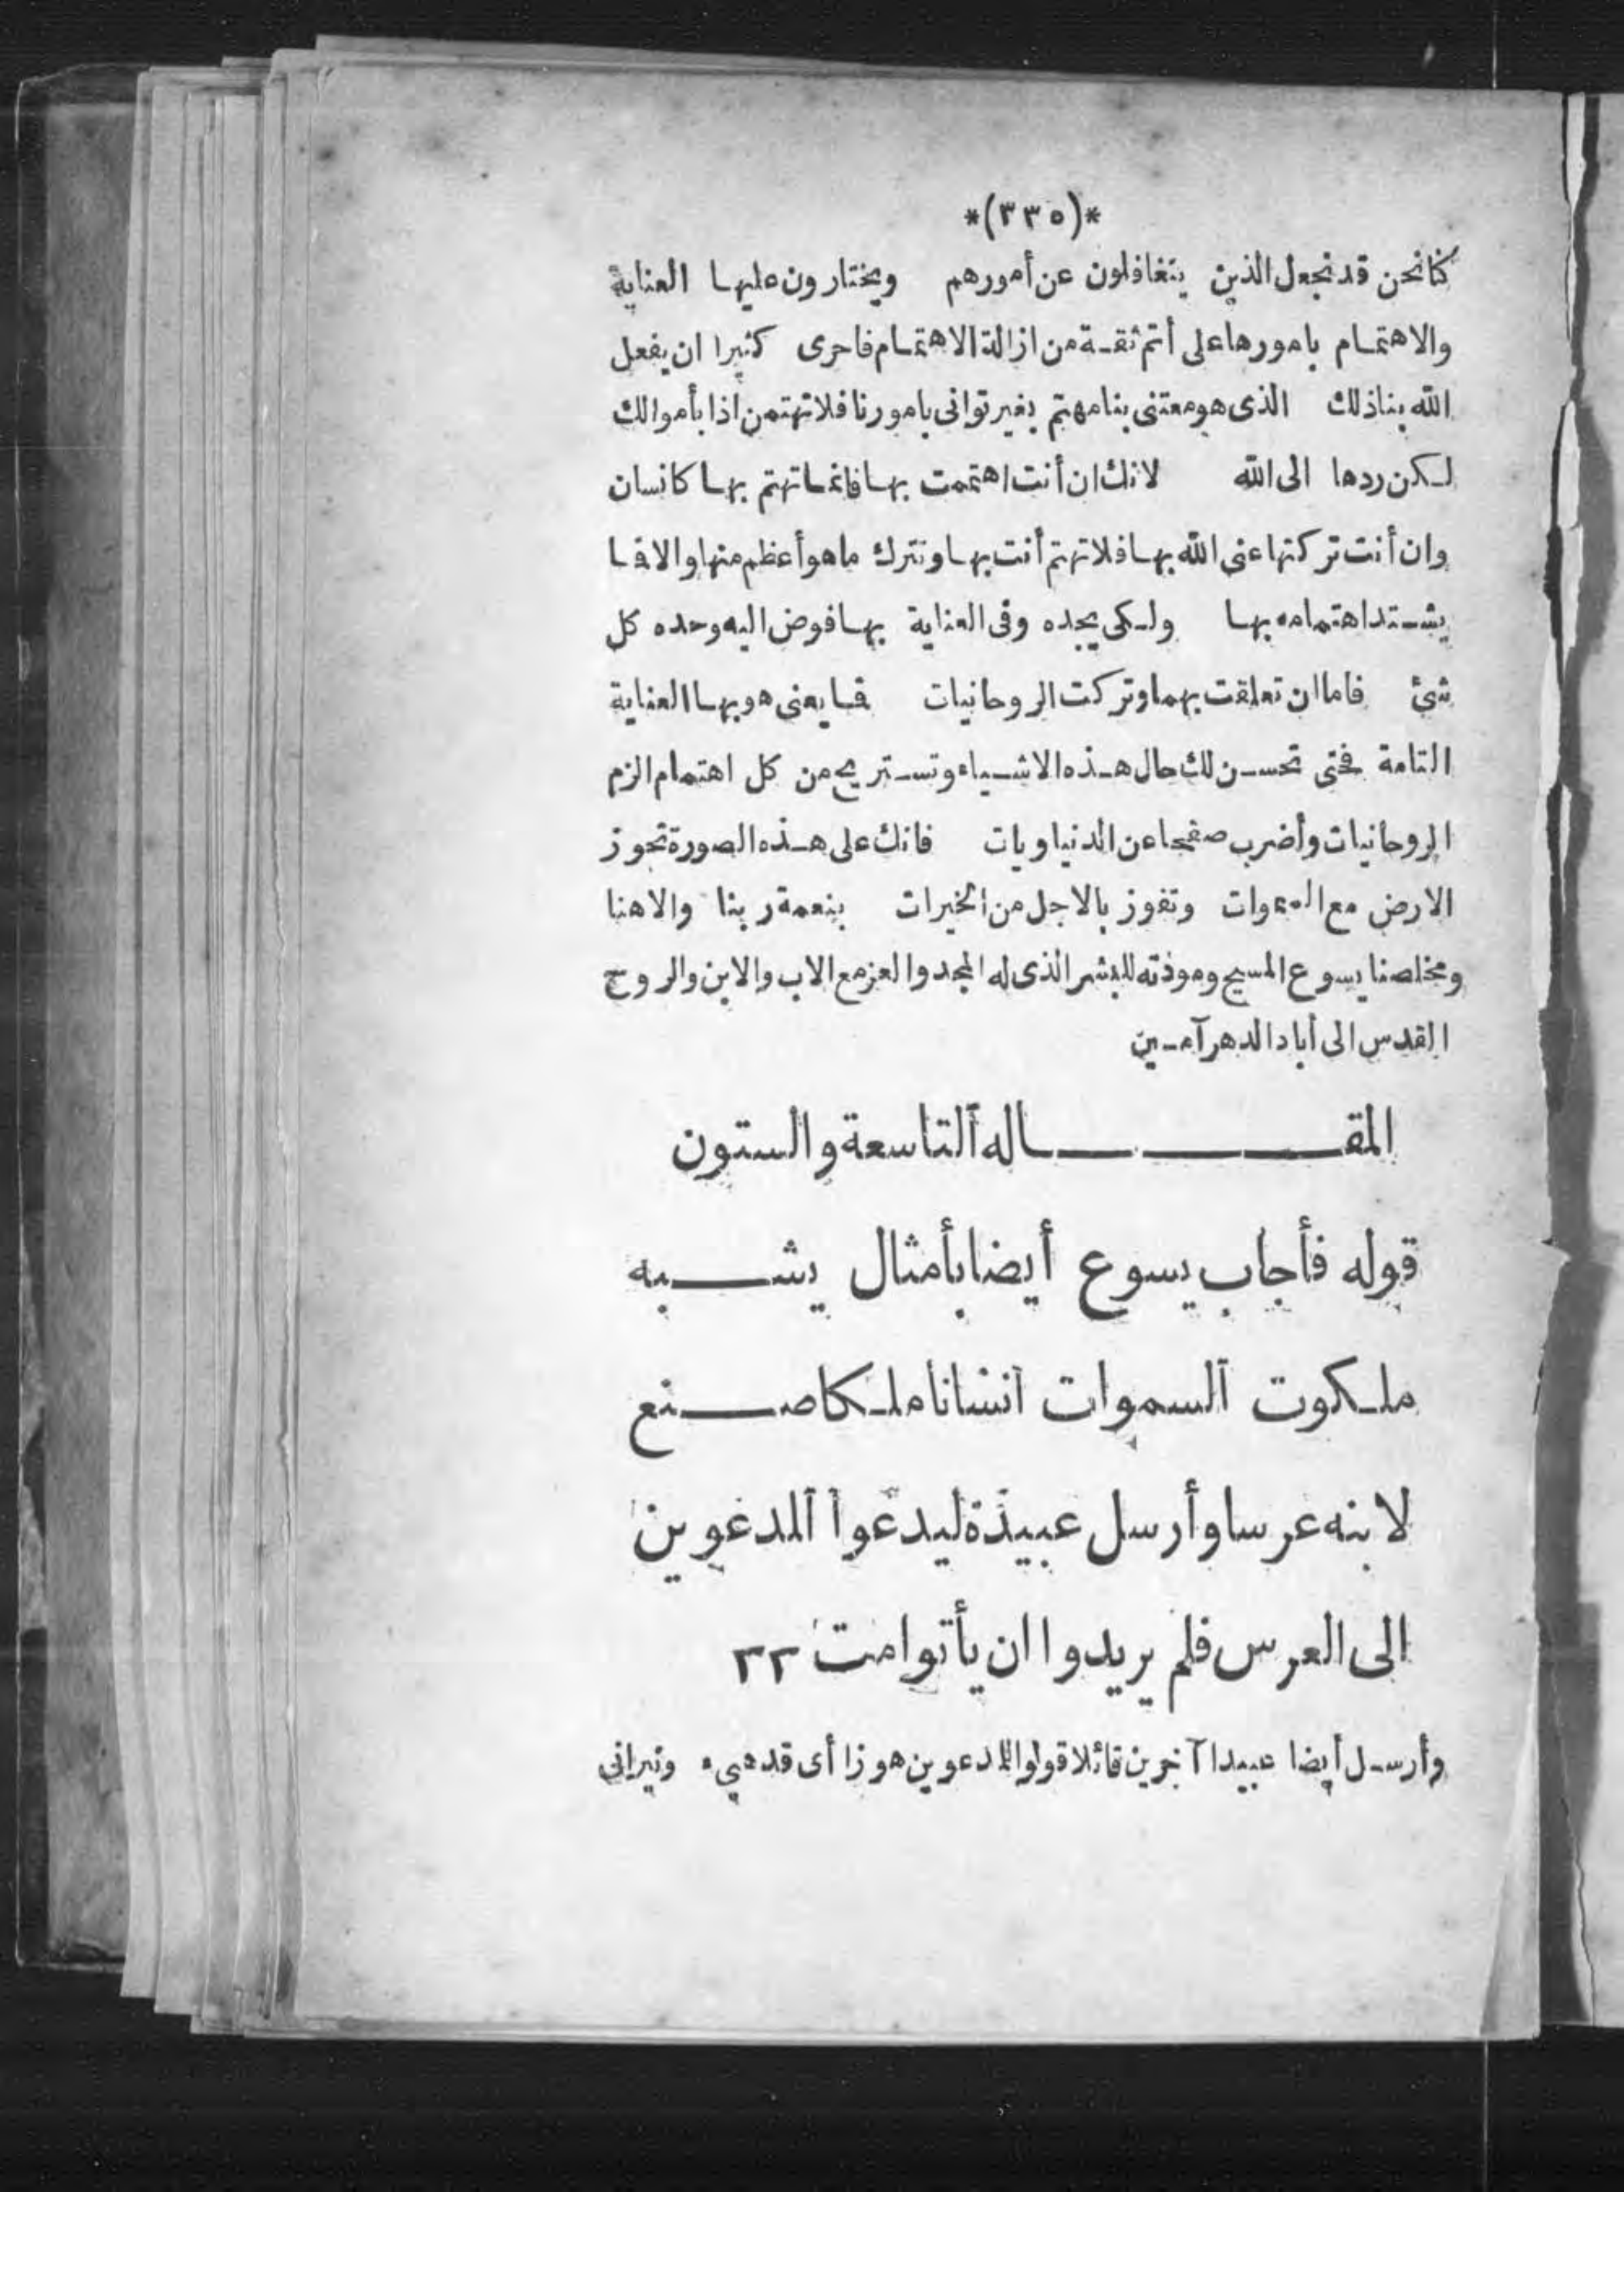 *(٣٣٥)*
كنا نحن قد نجعل الذين يتغافلون عن أمورهم ويختارون عليها العناية
والاهتمام بامورها على أتم ثقة من ازالة الاهتمام فاحرى كثيرا ان يفعل
الله بنا ذلك الذى هو معتنى بنا مهتم بغير توانى بامورنا فلا تهتمن اذا بأموالك
لكن ردها الى الله لانك ان أنت اهتممت بها فانما تهتم بها كانسان
وان أنت تركتها عنى الله بها فلا تهتم أنت بها وتترك ما هو أعظم منها والا فا
يشتد اهتمامه بها ولكى يجده وفى العناية بها فوض اليه وحده كل
شئ فاما ان تعلقت بهما وتركت الروحانيات فا يعنى هو بها العناية
التامة فتى تحسن لك حال هذه الاشياء وتستريح من كل اهتمام الزم
الروحانيات وأضرب صفحا عن الدنياويات فانك على هذه الصورة تحوز
الارض مع السموات وتفوز بالاجل من الخيرات بنعمة ربنا والاهنا
ومخلصنا يسوع المسيح ومودته للبشر الذى له المجد والعز مع الاب والابن والروح
القدس الى أباد الدهر آمين
المقاله التاسعة والستون
قوله فأجاب يسوع أيضا بأمثال يشبه
ملكوت السموات انسانا ملكا صنع
لابنه عرسا وأرسل عبيدة ليدعوا المدعوين
الى العرس فلم يريدوا ان يأتوا مت ٢٢
وأرسل أيضا عبيدا آخرين قائلا قولوا للمدعوين هوزا أى قد هيء وثيرانى